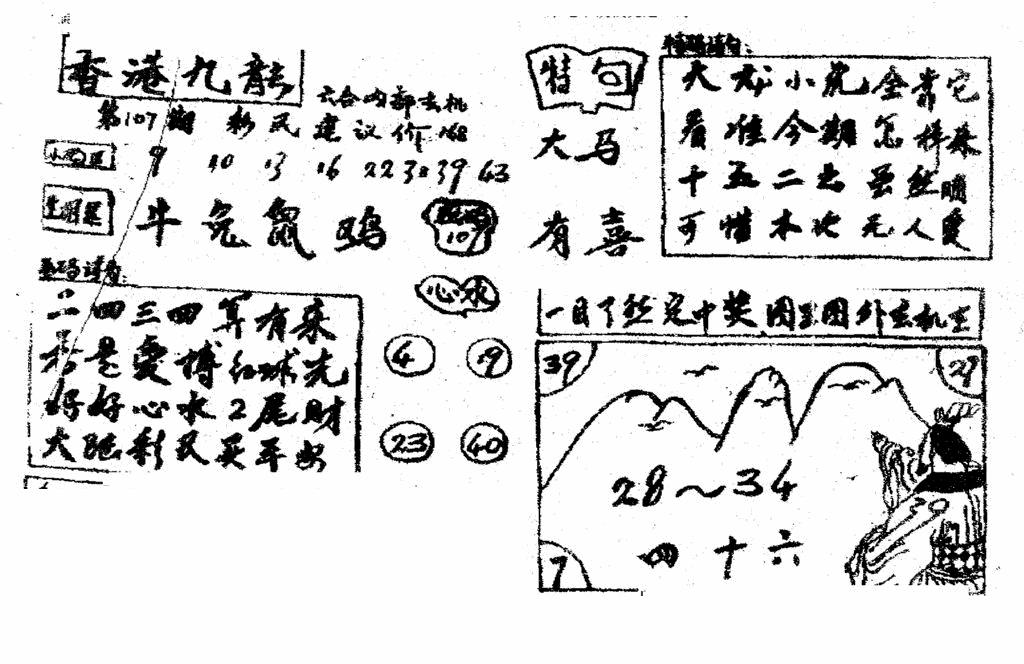 香港九龍
六合内部玄机
第107期 彩民建议价168
9 10 13 16 22 38 39 43
生肖区
牛 兔 鼠 鸡
10
心水
二四三四算有来
是爱博红球先
好好心水2尾财
大胆彩民买平安
4 19
23 40
特句
大马
有喜
大龙小虎全靠它
看准今期怎样来
十五二去虽然晴
可惜本次无人爱
一目了然定中奖 图里图外玄机在
39 29
28～34
四十六
7